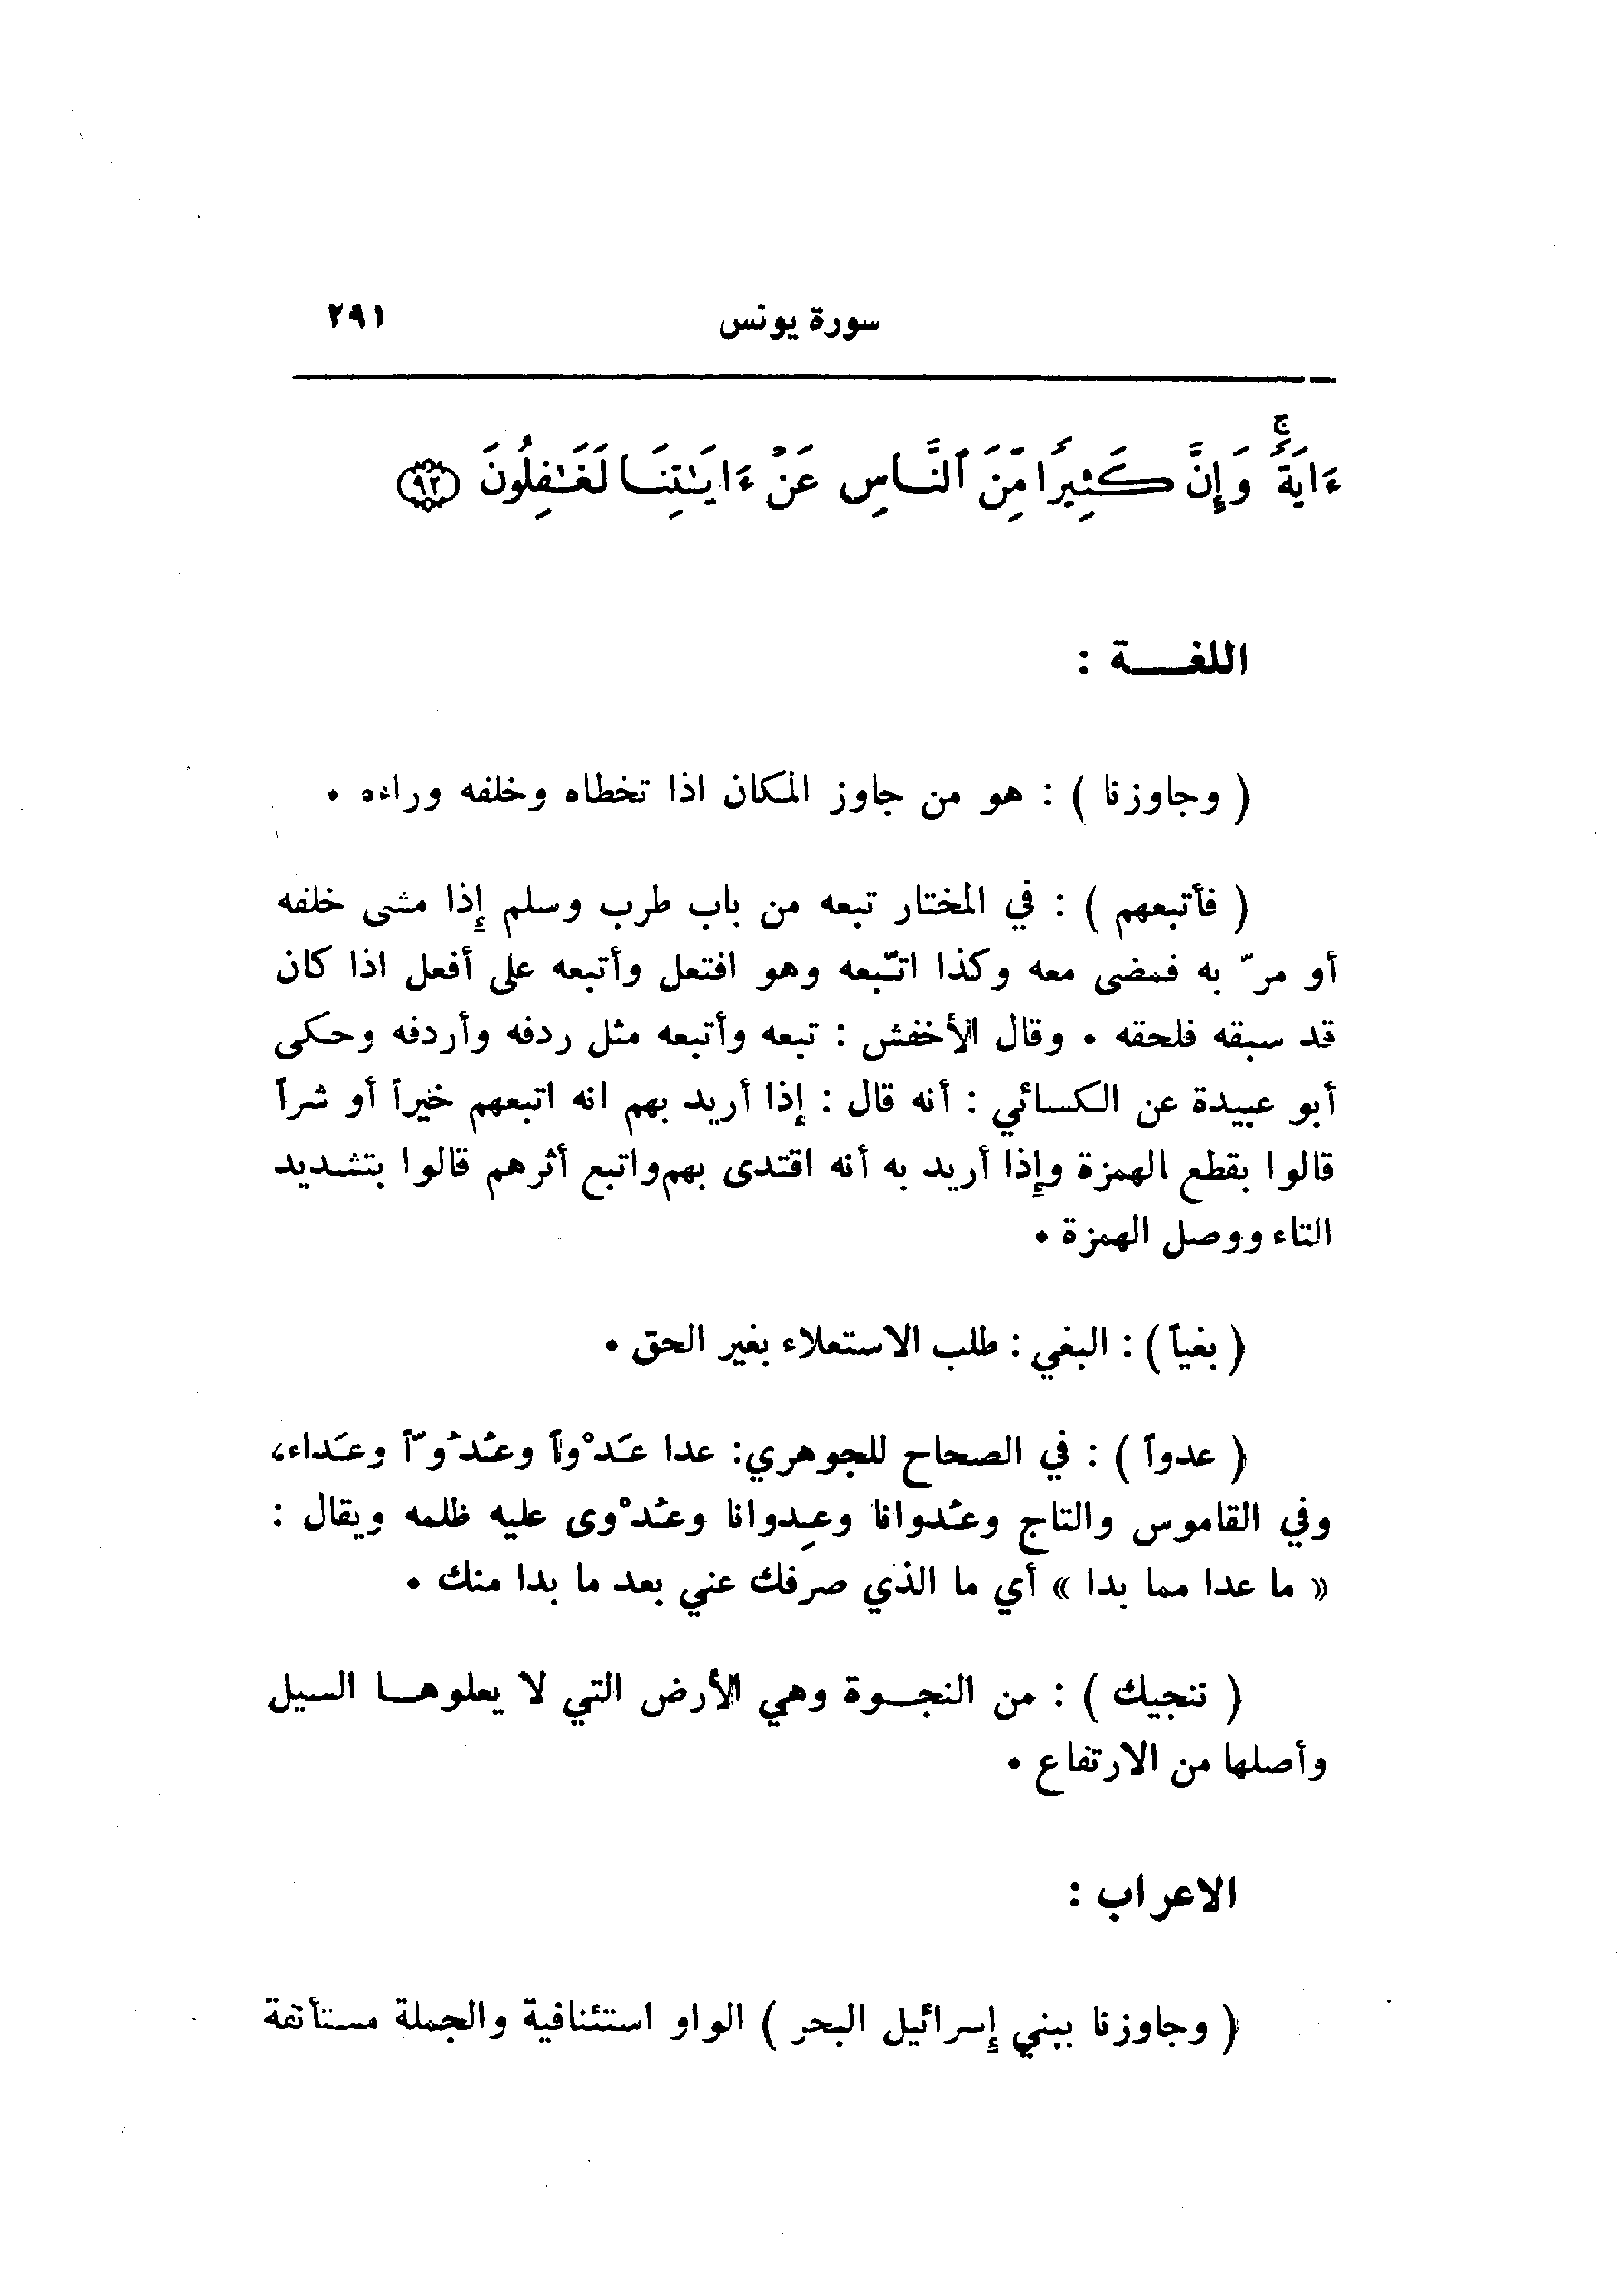 سورة يونس ٢٩١
ءَايَةً ۚ وَإِنَّ كَثِيرًا مِّنَ ٱلنَّاسِ عَنْ ءَايَٰتِنَا لَغَٰفِلُونَ ٩٢
اللغـــة :
( وجاوزنا ) : هو من جاوز المكان اذا تخطاه وخلفه وراءه .
( فأتبعهم ) : في المختار تبعه من باب طرب وسلم إذا مشى خلفه
أو مرّ به فمضى معه وكذا اتّبعه وهو افتعل وأتبعه على أفعل اذا كان
قد سبقه فلحقه . وقال الأخفش : تبعه وأتبعه مثل ردفه وأردفه وحكى
أبو عبيدة عن الكسائي : أنه قال : إذا أريد بهم انه اتبعهم خيراً أو شراً
قالوا بقطع الهمزة وإذا أريد به أنه اقتدى بهم واتبع أثرهم قالوا بتشديد
التاء ووصل الهمزة .
( بغياً ) : البغي : طلب الاستعلاء بغير الحق .
( عدواً ) : في الصحاح للجوهري: عدا عَدْواً وعُدُوّاً وعَداء،
وفي القاموس والتاج وعُدوانا وعِدوانا وعُدْوى عليه ظلمه ويقال :
« ما عدا مما بدا » أي ما الذي صرفك عني بعد ما بدا منك .
( ننجيك ) : من النجـوة وهي الأرض التي لا يعلوهـا السيل
وأصلها من الارتفاع .
الاعراب :
( وجاوزنا ببني إسرائيل البحر ) الواو استئنافية والجملة مستأنفة